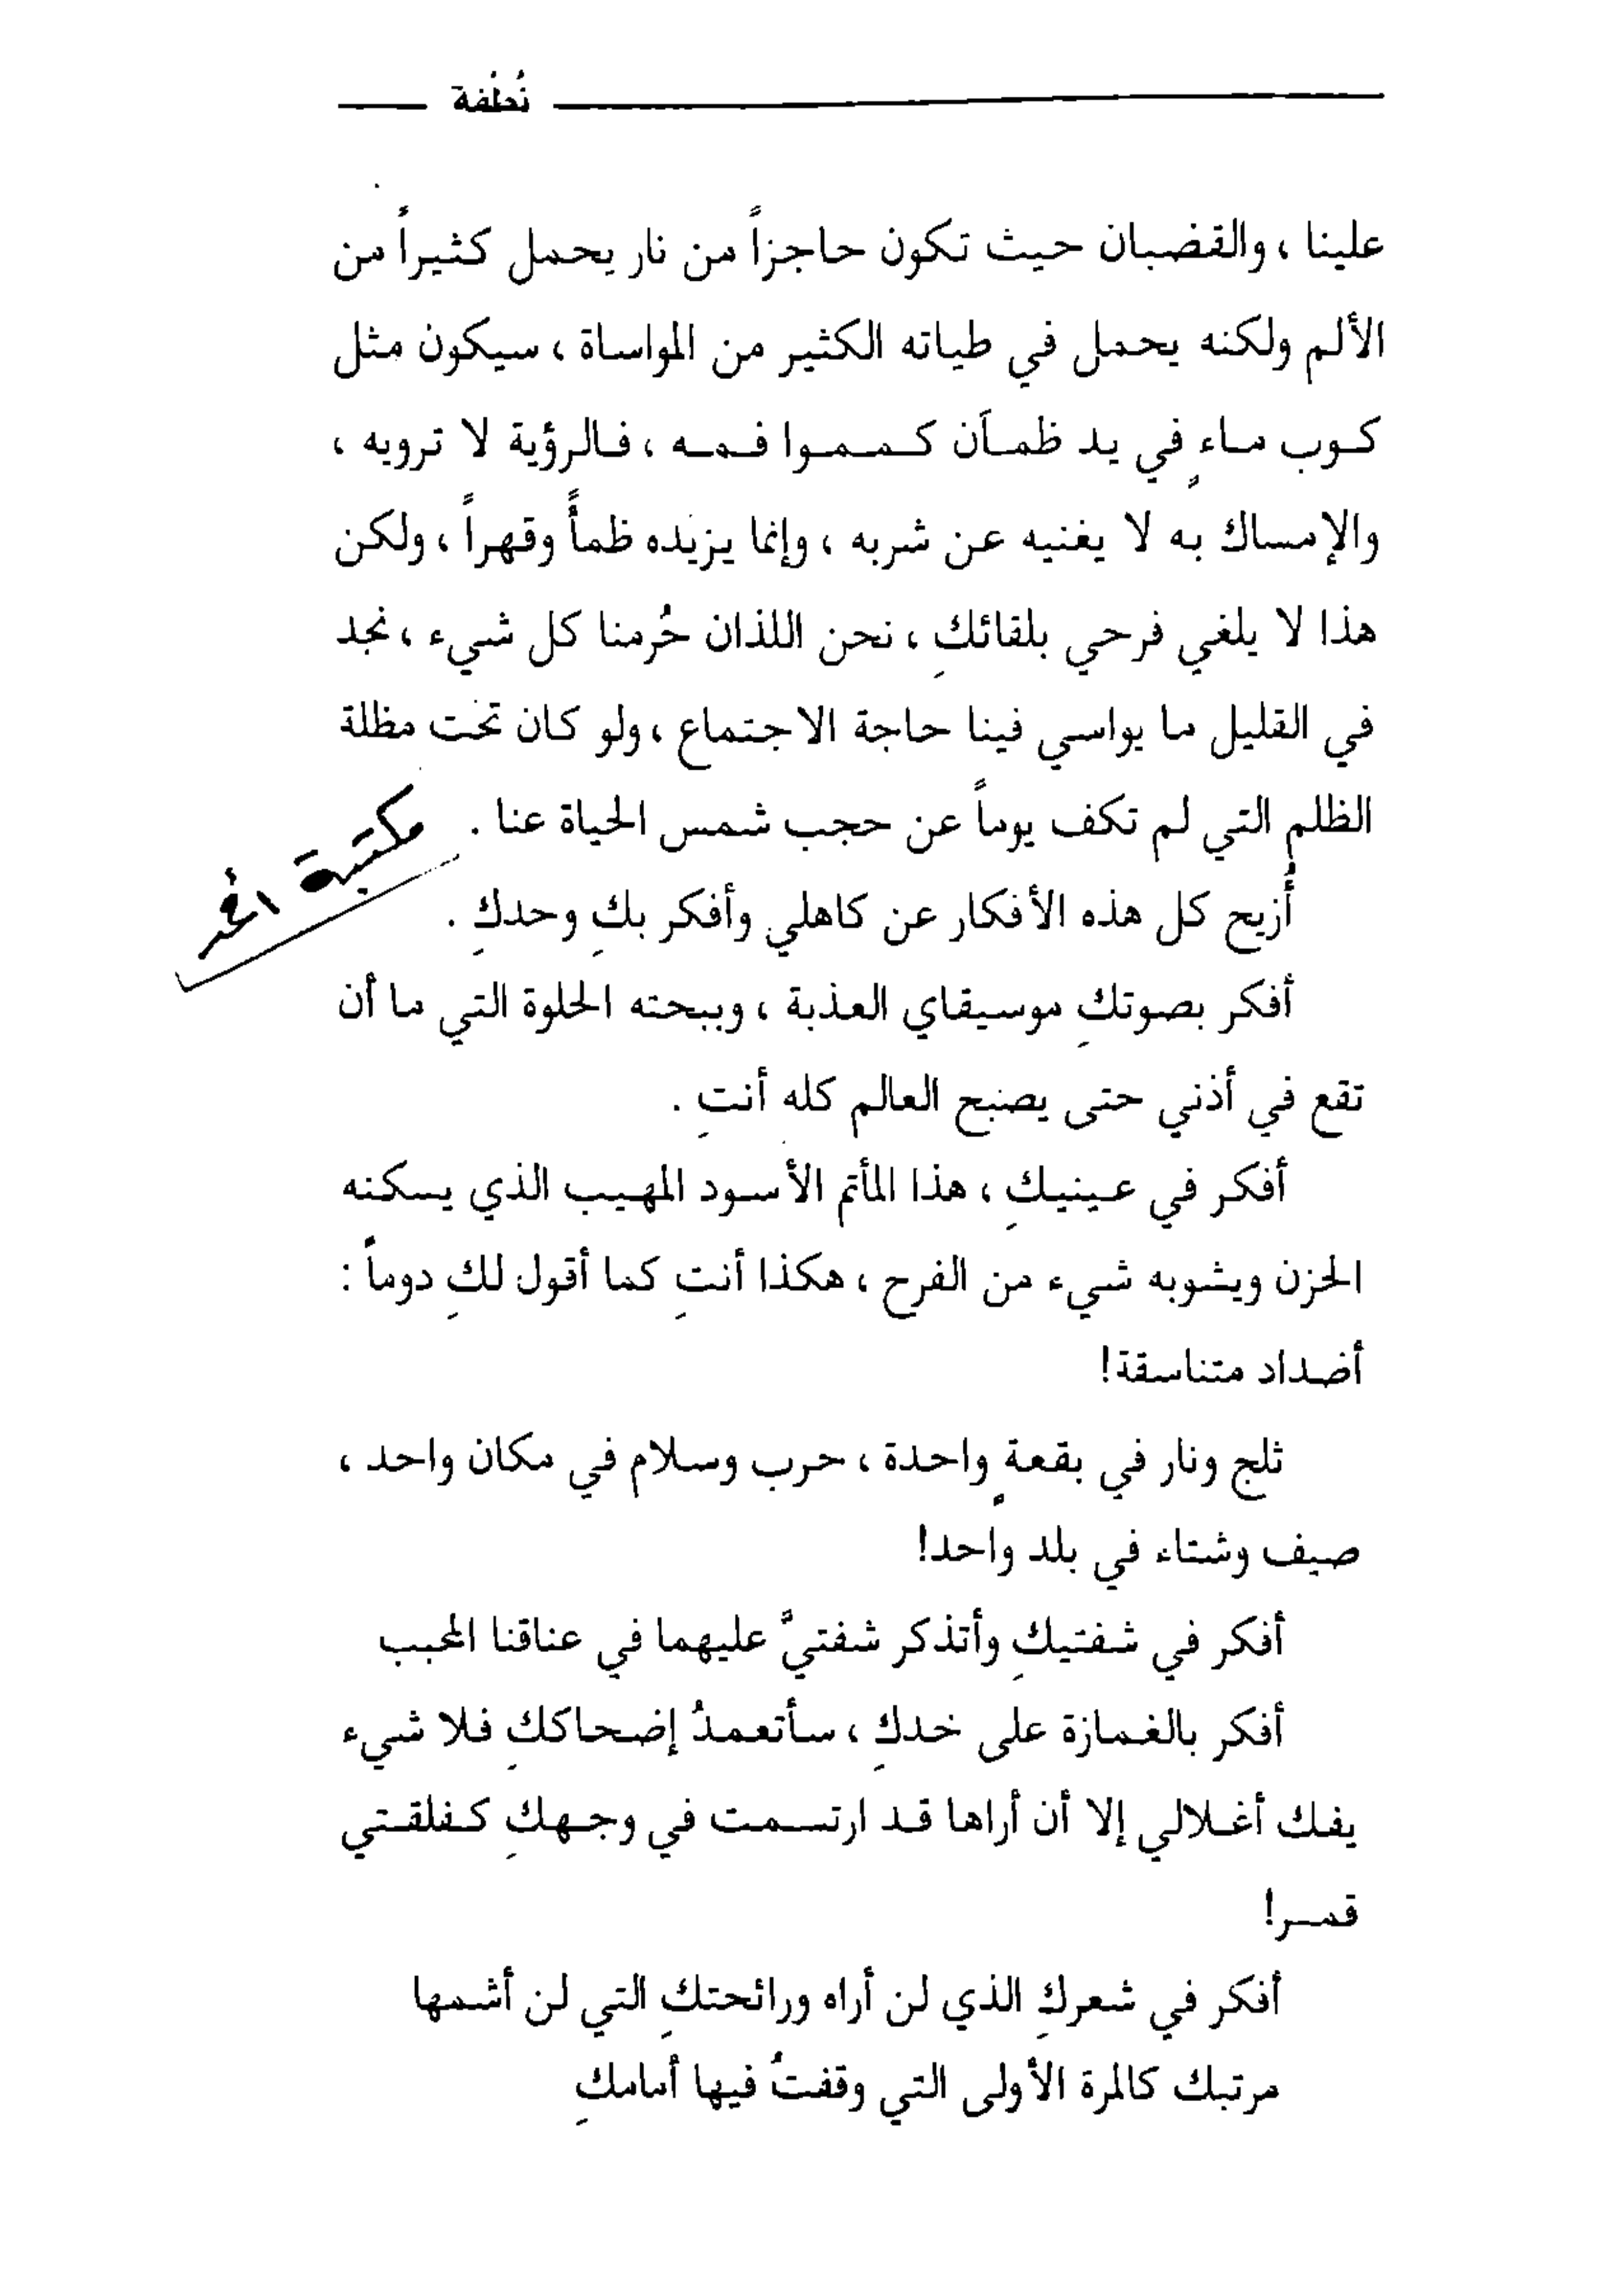 نُطفة
علينا ، والقضبان حيث تكون حاجزاً من نار يحمل كثيراً من
الألم ولكنه يحمل في طياته الكثير من المواساة ، سيكون مثل
كوب ماءٍ في يد ظمآن كمموا فمه ، فالرؤية لا ترويه ،
والإمساك به لا يغنيه عن شربه ، وإنما يزيده ظمأً وقهراً ، ولكن
هذا لا يلغي فرحي بلقائكِ ، نحن اللذان حُرمنا كل شيء ، نجد
في القليل ما يواسي فينا حاجة الاجتماع ، ولو كان تحت مظلة
الظلم التي لم تكف يوماً عن حجب شمس الحياة عنا .
مكتبة
أُزيح كل هذه الأفكار عن كاهلي وأفكر بكِ وحدكِ .
أفكر بصوتكِ موسيقاي العذبة ، وببحته الحلوة التي ما أن
تقع في أذني حتى يصبح العالم كله أنتِ .
أفكر في عينيكِ ، هذا المأتم الأسود المهيب الذي يسكنه
الحزن ويشوبه شيء من الفرح ، هكذا أنتِ كما أقول لكِ دوماً :
أضداد متناسقة!
ثلج ونار في بقعةٍ واحدة ، حرب وسلام في مكان واحد ،
صيف وشتاء في بلد واحد!
أفكر في شفتيكِ وأتذكر شفتيَّ عليهما في عناقنا المحبب
أفكر بالغمازة على خدكِ ، سأتعمدُ إضحاككِ فلا شيء
يفك أغلالي إلا أن أراها قد ارتسمت في وجهكِ كفلقتي
قمر!
أفكر في شعركِ الذي لن أراه ورائحتكِ التي لن أشمها
مرتبك كالمرة الأولى التي وقفتُ فيها أمامكِ